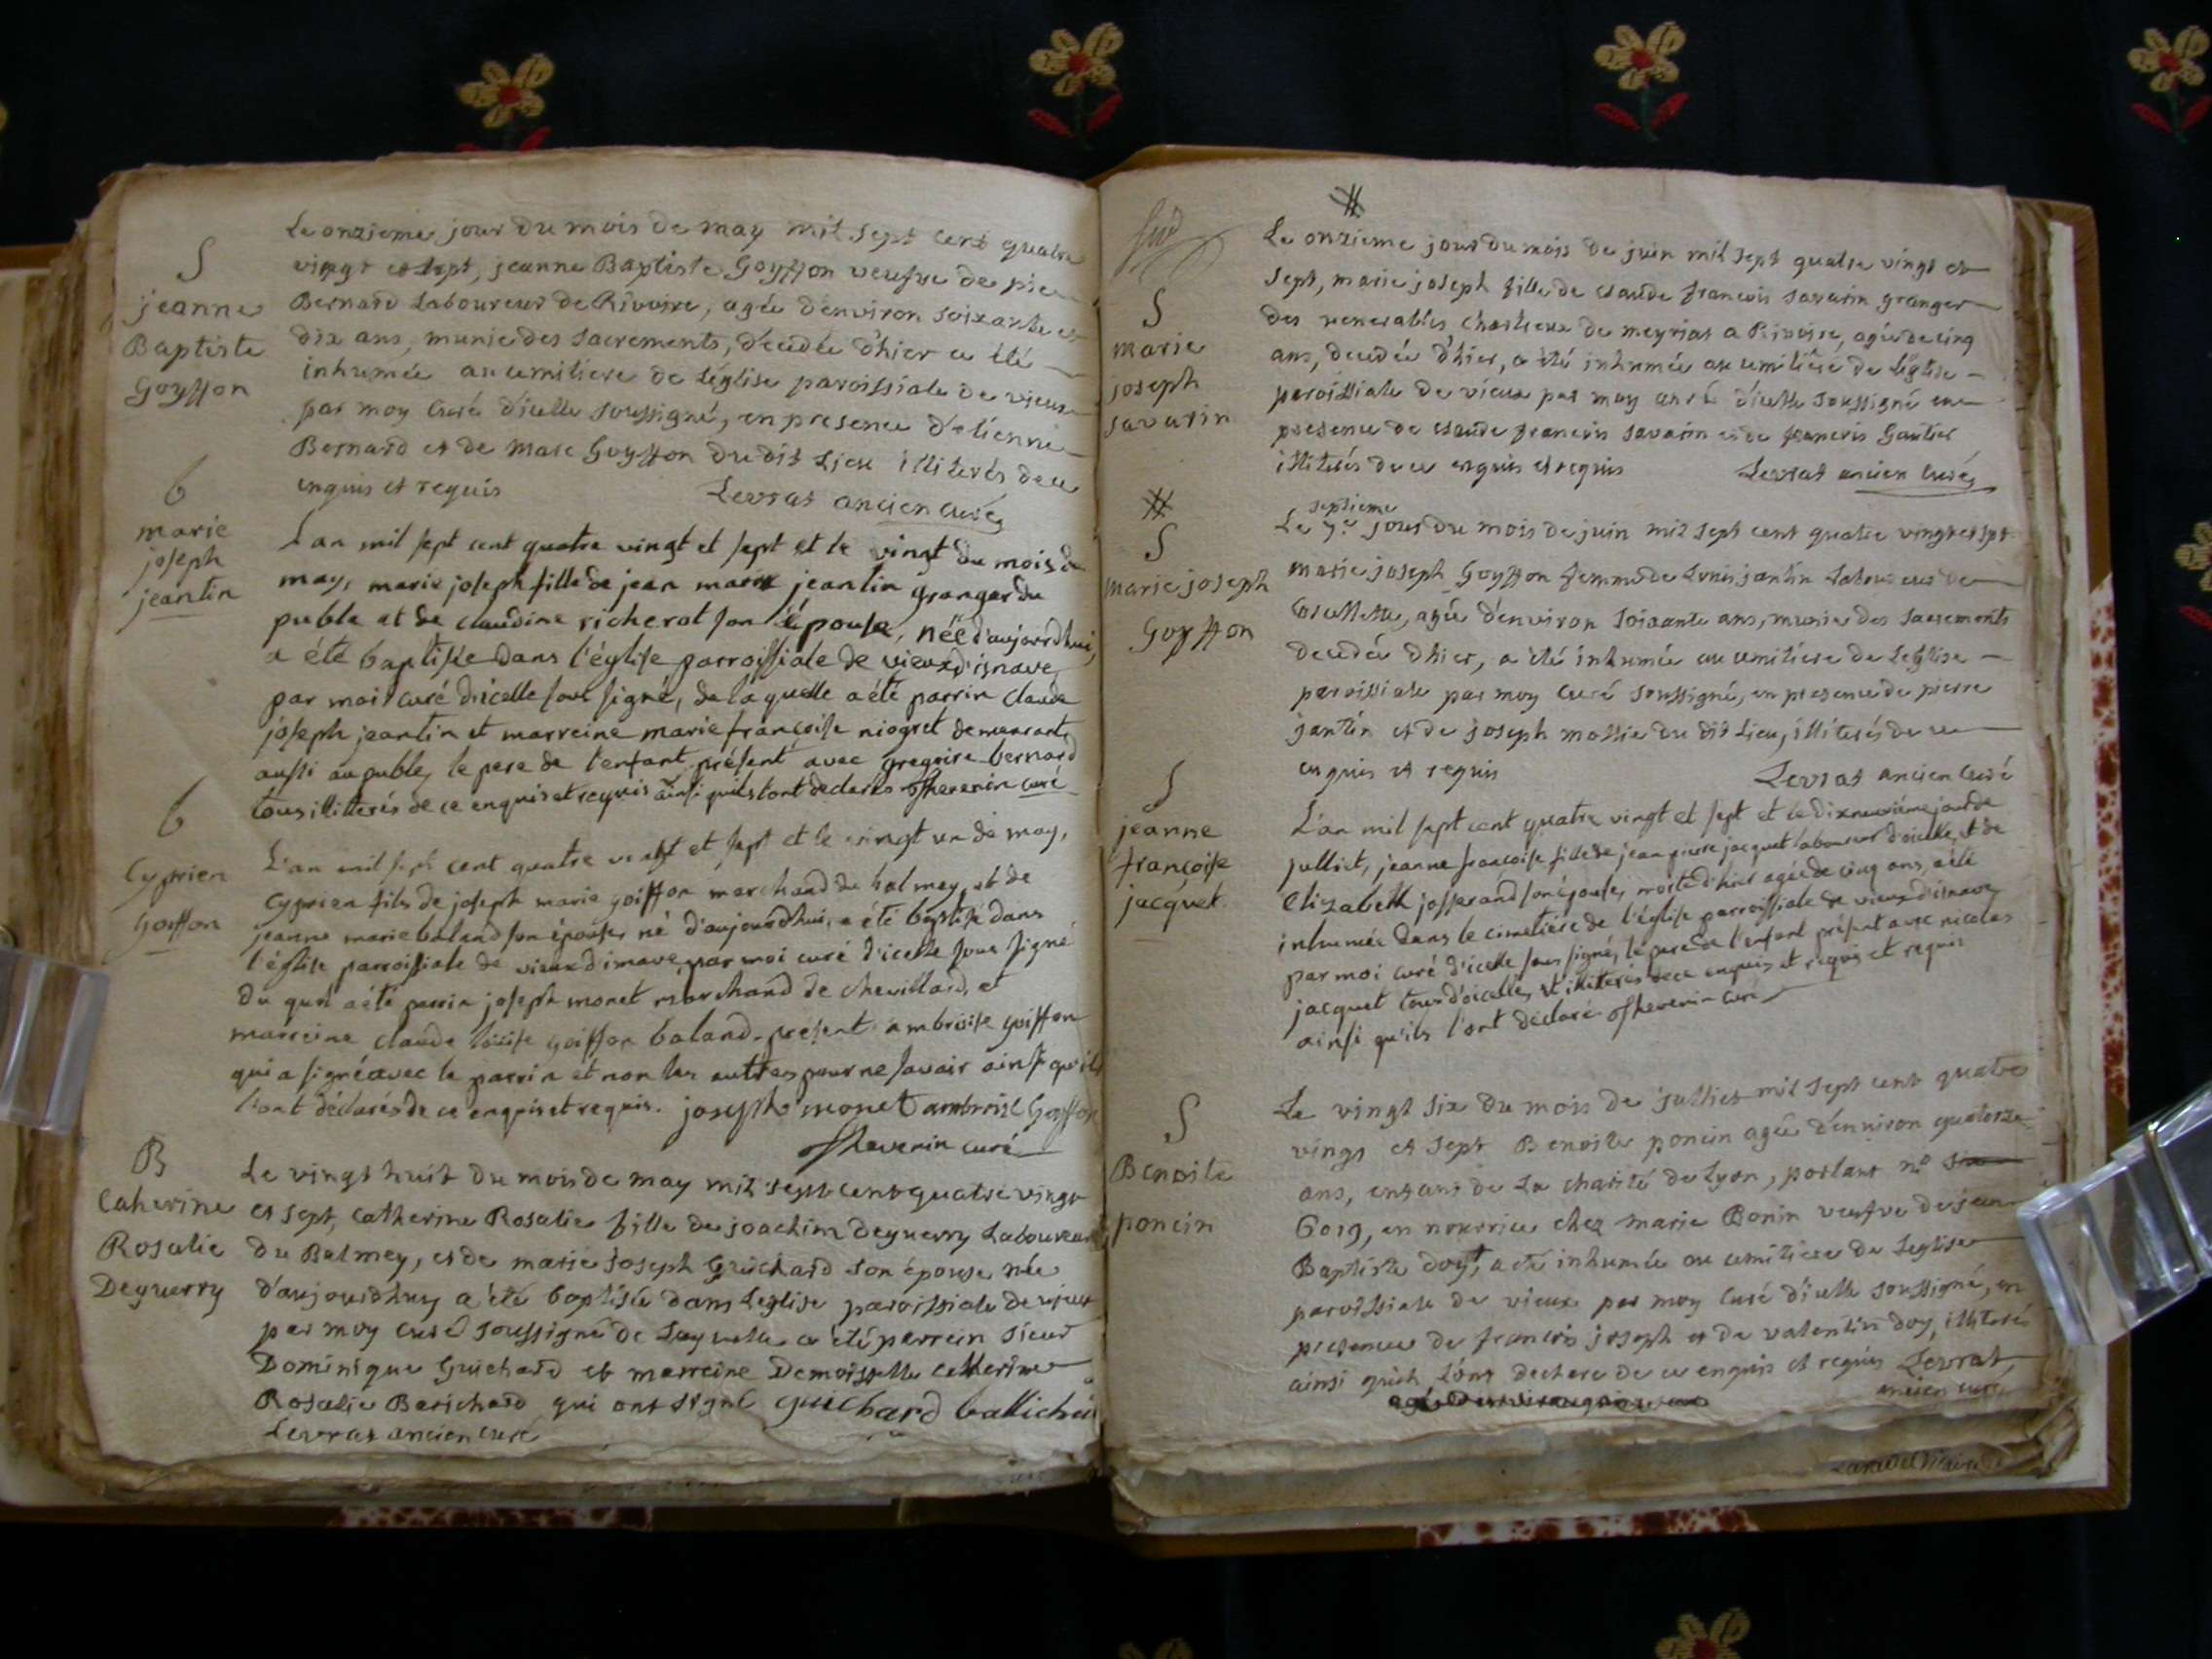 S
jeanne
Baptiste
Goyffon
Le onzieme jour du mois de may mil sept cent quatre
vingt et sept, jeanne Baptiste Goyffon veufve de pie
Bernard Laboureur de Rivoire, agée d'environ soixante et
dix ans, munie des sacrements, decedée d'hier a été
inhumée au cemitiere de l'église paroissiale de vieux
par moy curé d'icelle soussigné, en presence d'etienne
Bernard et de Marc Goyffon du dit Lieu illiterés de ce
enquis et requis Levrat ancien curé
b
marie
joseph
jeantin
L'an mil sept cent quatre vingt et sept et le vingt du mois de
may, marie joseph fille de jean marie jeantin granger du
puble et de claudine richerot son épouse, née d'aujourd'hui,
a été baptisée dans l'église parroissiale de vieux d'isnave
par moi curé d'icelle sous signé, de laquelle a été parrin claude
joseph jeantin et marreine marie françoise niogret demeurants
aussi au puble, le pere de l'enfant présent avec gregoire bernard
tous illiterés de ce enquis et requis ainsi qu'ils l'ont declarés Thevenin curé
b
Cyprien
Goiffon
L'an mil sept cent quatre vingt et sept et le vingt un de may,
cyprien fils de joseph marie goiffon marchand du balmey et de
jeanne marie baland son épouse, né d'aujourdhui, a été baptisé dans
l'église parroissiale de vieux d'isnave, par moi curé d'icelle sous signé
du quel a été parrin joseph monet marchand de chevillard, et
marreine claude loüise goiffon baland. présent ambroise goiffon
qui a signé avec le parrin et non les autres pour ne savoir ainsi qu'ils
l'ont déclarés de ce enquis et requis. joseph monet ambroise Goyffon
Thevenin curé
B
Catherine
Rosalie
Deguerry
Le vingt huit du mois de may mil sept cent quatre vingt
et sept, catherine Rosalie fille de joachim Deguerry Laboureur
du Balmey, et de marie Joseph Guichard son épouse née
d'aujourdhuy a été baptisée dans L'eglise paroissiale de vieux
par moy curé soussigné de Laquelle a été parrein sieur
Dominique Guichard et marreine Demoiselle catherine
Rosalie Barichard qui ont signé guichard
Levrat ancien curé
#
S
marie
joseph
savarin
Le onzieme jour du mois de juin mil sept quatre vingt et
sept, marie joseph fille de claude francois savarin granger
des venerables Chartreux de meyriat a Rivoire, agée de cinq
ans, decedée d'hier, a été inhumée au cemitiere de l'église
paroissiale de vieux par moy curé d'icelle soussigné en
presence de claude francois savarin et de francois Gautier
illiterés de ce enquis et requis Levrat ancien curé
#
S
marie joseph
Goyffon
septieme
Le 7e jour du mois de juin mil sept cent quatre vingt et sept
marie joseph Goyffon femme de Louis jantin Laboureur de
agée d'environ soixante ans, munie des sacrements
decedée d'hier, a été inhumée au cemitiere de l'eglise
paroissiale par moy curé soussigné, en presence de pierre
jantin et de joseph du dit Lieu, illiterés de ce
enquis et requis Levrat ancien curé
S
jeanne
françoise
jacquet
L'an mil sept cent quatre vingt et sept et le dixneuvième jour de
julliet, jeanne françoise fille de jean pierre jacquet laboureur d'icelle, et de
Elizabeth josserand son épouse, morte d'hier agée de cinq ans, a été
inhumée dans le cimetière de l'église parroissiale de vieux d'isnave
par moi curé d'icelle sous signé, le pere de l'enfant présent avec nicolas
jacquet tous d'icelle, et illiterés de ce enquis et requis et requis
ainsi qu'ils l'ont déclaré Thevenin curé
S
Benoite
poncin
Le vingt six du mois de julliet mil sept cent quatre
vingt et sept Benoite poncin agée d'environ quatorze
ans, enfant de La charité de Lyon, portant n.o
6019, en nourrice chez marie Bonin veufve de jean
Baptiste doy, a été inhumée au cemitiere de L'eglise
paroissiale de vieux par moy curé d'icelle soussigné, en
presence de francois joseph et de valentin doy, illiterés
ainsi qu'ils L'ont declaré de ce enquis et requis Levrat
ancien curé